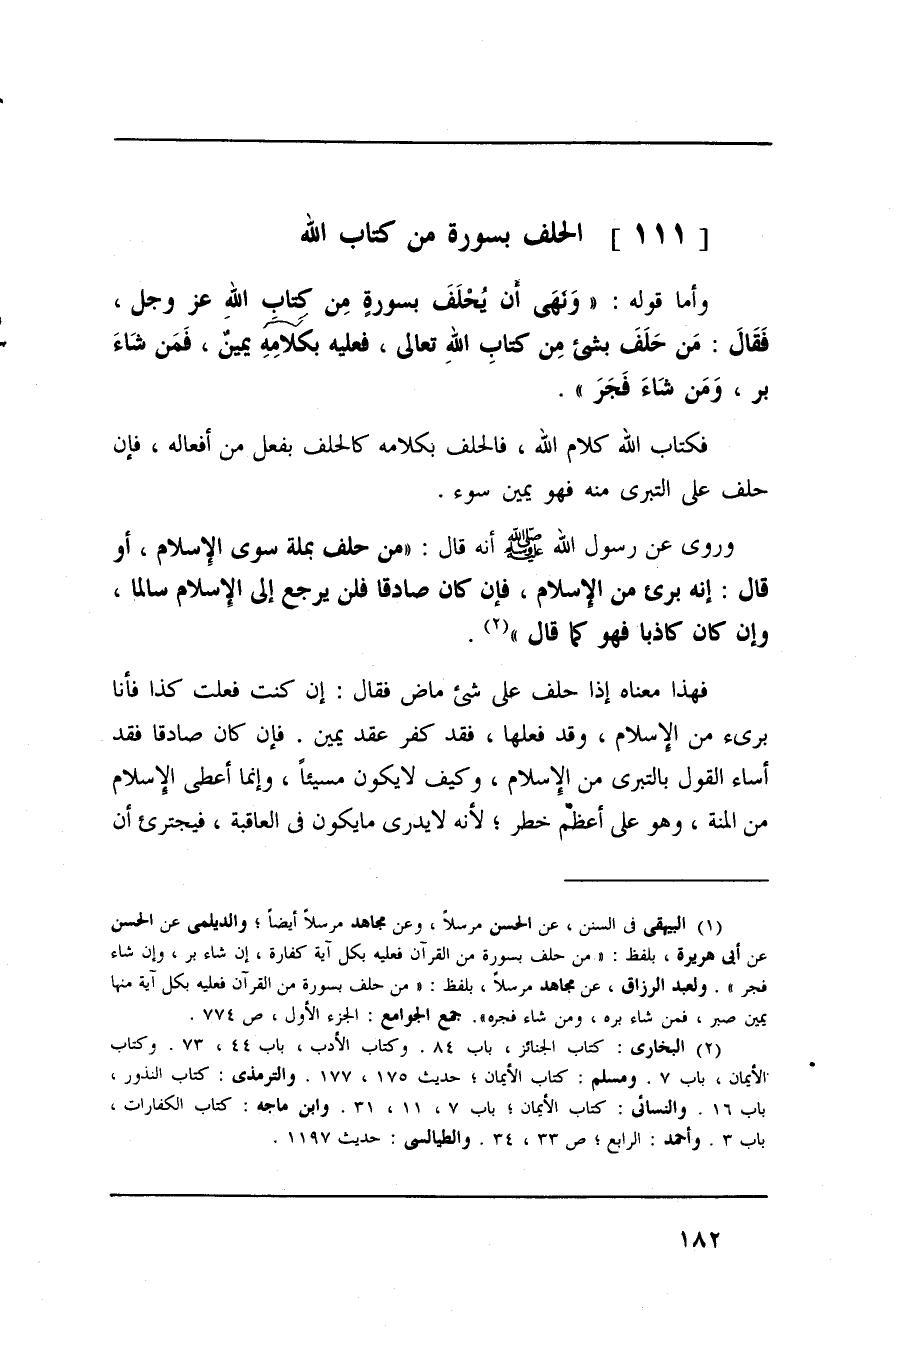 [ ١١١ ] الحلف بسورة من كتاب الله
وأما قوله : « وَنَهَى أَن يُحْلَفَ بسورةٍ مِن كِتابِ اللهِ عز وجل ،
فَقَالَ : مَن حَلَفَ بشئ مِن كتابِ اللهِ تعالى ، فعليه بكلامِهِ يمينٌ ، فَمَن شاءَ
بر ، وَمَن شَاءَ فَجَرَ » .
فكتاب الله كلام الله ، فالحلف بكلامه كالحلف بفعل من أفعاله ، فإن
حلف على التبرى منه فهو يمين سوء .
وروى عن رسول الله ﷺ أنه قال : «من حلف بملة سوى الإسلام ، أو
قال : إنه برئ من الإسلام ، فإن كان صادقا فلن يرجع إلى الإسلام سالما ،
وإن كان كاذبا فهو كما قال »(٢) .
فهذا معناه إذا حلف على شئ ماض فقال : إن كنت فعلت كذا فأنا
برىء من الإسلام ، وقد فعلها ، فقد كفر عقد يمين . فإن كان صادقا فقد
أساء القول بالتبرى من الإسلام ، وكيف لايكون مسيئاً ، وإنما أعطى الإسلام
من المنة ، وهو على أعظم خطر ؛ لأنه لايدرى مايكون فى العاقبة ، فيجترئ أن
(١) البيهقى فى السنن ، عن الحسن مرسلاً ، وعن مجاهد مرسلاً أيضاً ؛ والديلمى عن الحسن
عن أبى هريرة ، بلفظ : « من حلف بسورة من القرآن فعليه بكل آية كفارة ، إن شاء بر ، وإن شاء
فجر » . ولعبد الرزاق ، عن مجاهد مرسلاً ، بلفظ : « من حلف بسورة من القرآن فعليه بكل آية منها
يمين صبر ، فمن شاء بره ، ومن شاء فجره». جمع الجوامع : الجزء الأول ، ص ٧٧٤ .
(٢) البخارى : كتاب الجنائز ، باب ٨٤ . وكتاب الأدب ، باب ٤٤ ، ٧٣ . وكتاب
الأيمان ، باب ٧ . ومسلم : كتاب الأيمان ؛ حديث ١٧٥ ، ١٧٧ . والترمذى : كتاب النذور ،
باب ١٦ . والنسائى : كتاب الأيمان ؛ باب ٧ ، ١١ ، ٣١ . وابن ماجه : كتاب الكفارات ،
باب ٣ . وأحمد : الرابع ؛ ص ٣٣ ، ٣٤ . والطيالسى : حديث ١١٩٧ .
١٨٢